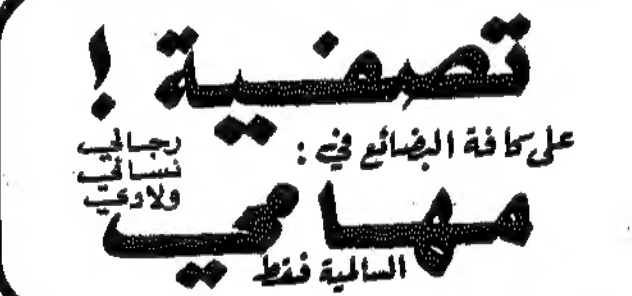 تصفية !
على كافة البضائع في :
رجالي
نسائي
ولادي
مهاي
السالمية فقط